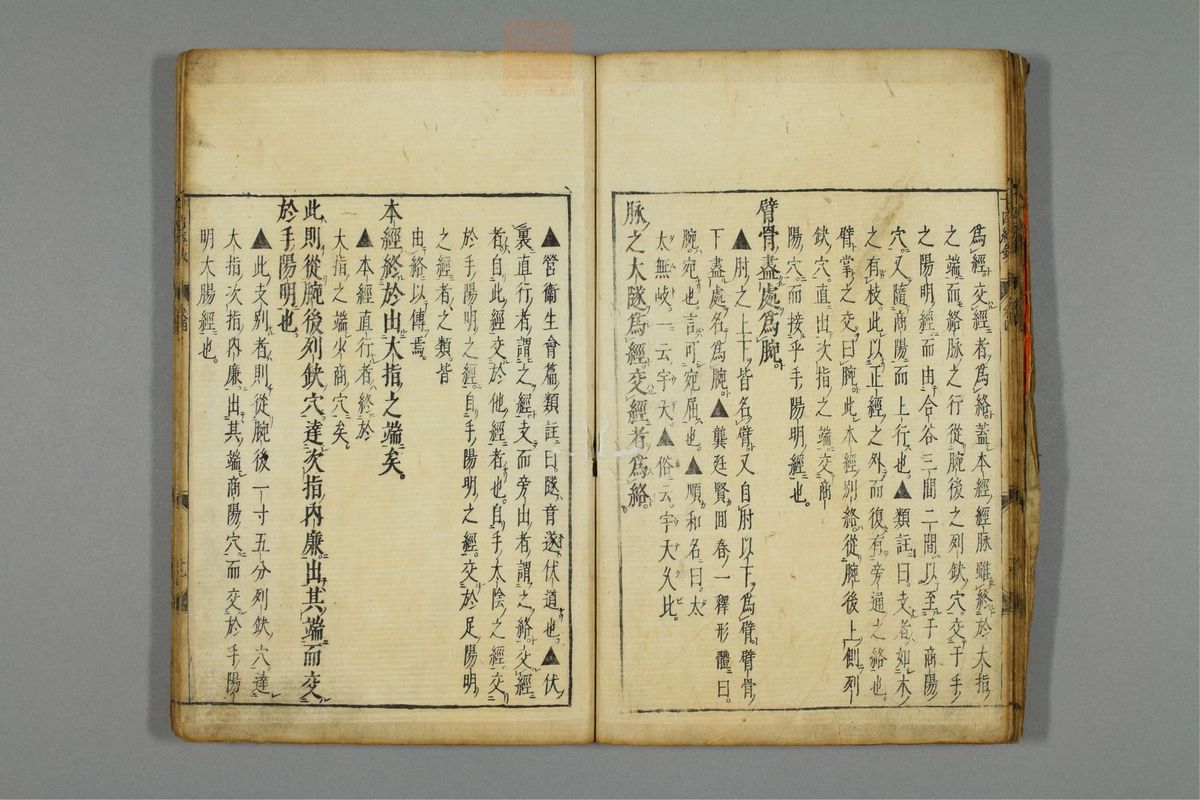 爲經交經者爲絡蓋本經經脉雖終於大指
之端而絡脉之行從腕後之列缺穴交于手
之陽明經而由合谷三間二間以至于商陽
穴又隨商陽而上行也▲類註曰支者如木
之有枝此以正經之外而復有旁通之絡也
臂掌之交曰腕此本經別絡從腕後上側列
缺穴直出次指之端交商
陽穴而接乎手陽明經也
臂骨盡處爲腕
▲肘之上下皆名臂又自肘以下爲臂臂骨
下盡處名爲腕▲龔廷賢回春一釋形體曰
腕宛也言可宛屈也▲順和名曰太
太無岐一云宇天▲俗云宇天久比
脉之大隧爲經交經者爲絡
▲營衞生會篇類註曰隧音遂伏道也▲伏
裏直行者謂之經支而旁出者謂之絡交經
者自此經交於他經者也自手太陰之經交
於手陽明之經自手陽明之經交於足陽明
之經者之類皆
由絡以傳焉
本經終於出大指之端矣
▲本經直行者終於
大指之端少商穴矣
此則從腕後列缺穴達次指内廉出其端而交
於手陽明也
▲此支別者則從腕後一寸五分列缺穴達
大指次指内廉出其端商陽穴而交於手陽
明大腸經也